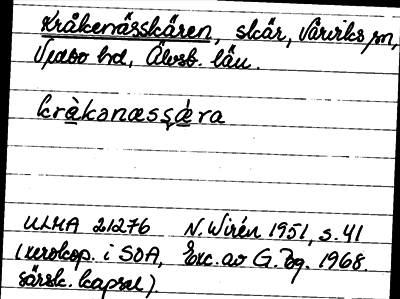 Kråkenässkären, skär, Nårviks sn,
Vedbo hd, Älvsb. län.
kràkənæsʂǽra
ULMA 21276 N. Wirén 1951, s. 41
(xerokop. i SOA, Exc. av G. Bg. 1968.
särsk. kapsel).